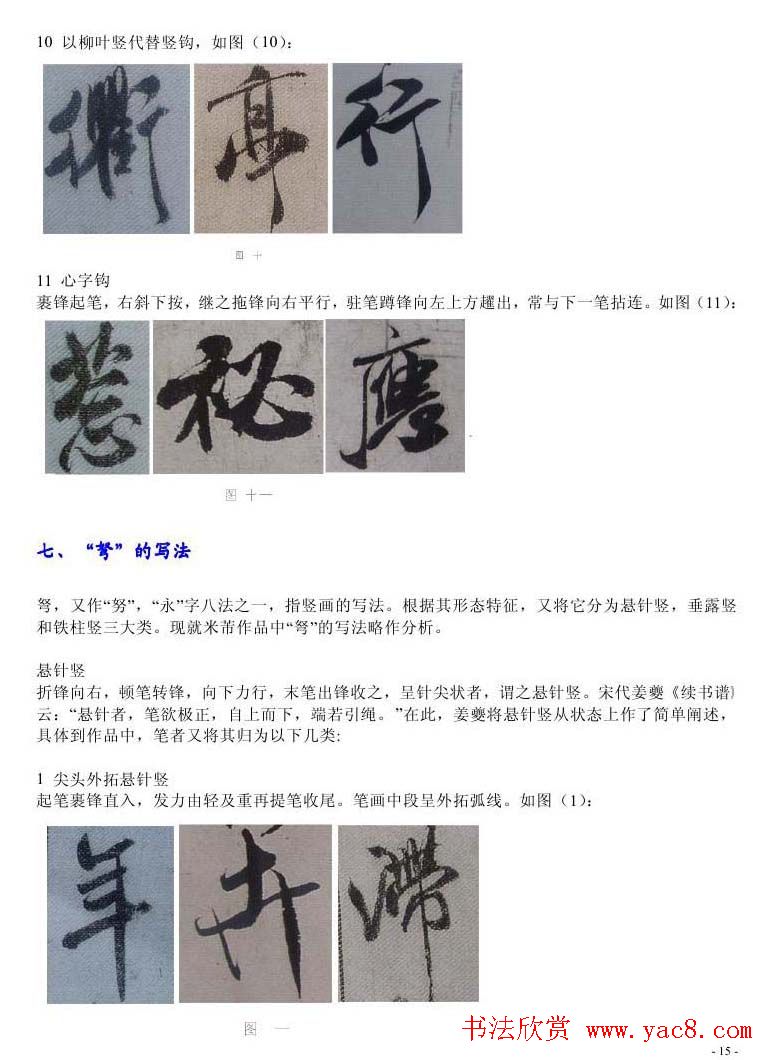 10 以柳叶竖代替竖钩，如图（10）：
衢 亭 行
图 十
11 心字钩
裹锋起笔，右斜下按，继之拖锋向右平行，驻笔蹲锋向左上方趯出，常与下一笔拈连。如图（11）：
惹 秘 鹰
图 十一
七、“弩”的写法
弩，又作“努”，“永”字八法之一，指竖画的写法。根据其形态特征，又将它分为悬针竖，垂露竖
和铁柱竖三大类。现就米芾作品中“弩”的写法略作分析。
悬针竖
折锋向右，顿笔转锋，向下力行，末笔出锋收之，呈针尖状者，谓之悬针竖。宋代姜夔《续书谱》
云：“悬针者，笔欲极正，自上而下，端若引绳。”在此，姜夔将悬针竖从状态上作了简单阐述，
具体到作品中，笔者又将其归为以下几类:
1 尖头外拓悬针竖
起笔裹锋直入，发力由轻及重再提笔收尾。笔画中段呈外拓弧线。如图（1）：
年 卉 滞
图 一
书法欣赏 www.yac8.com
- 15 -